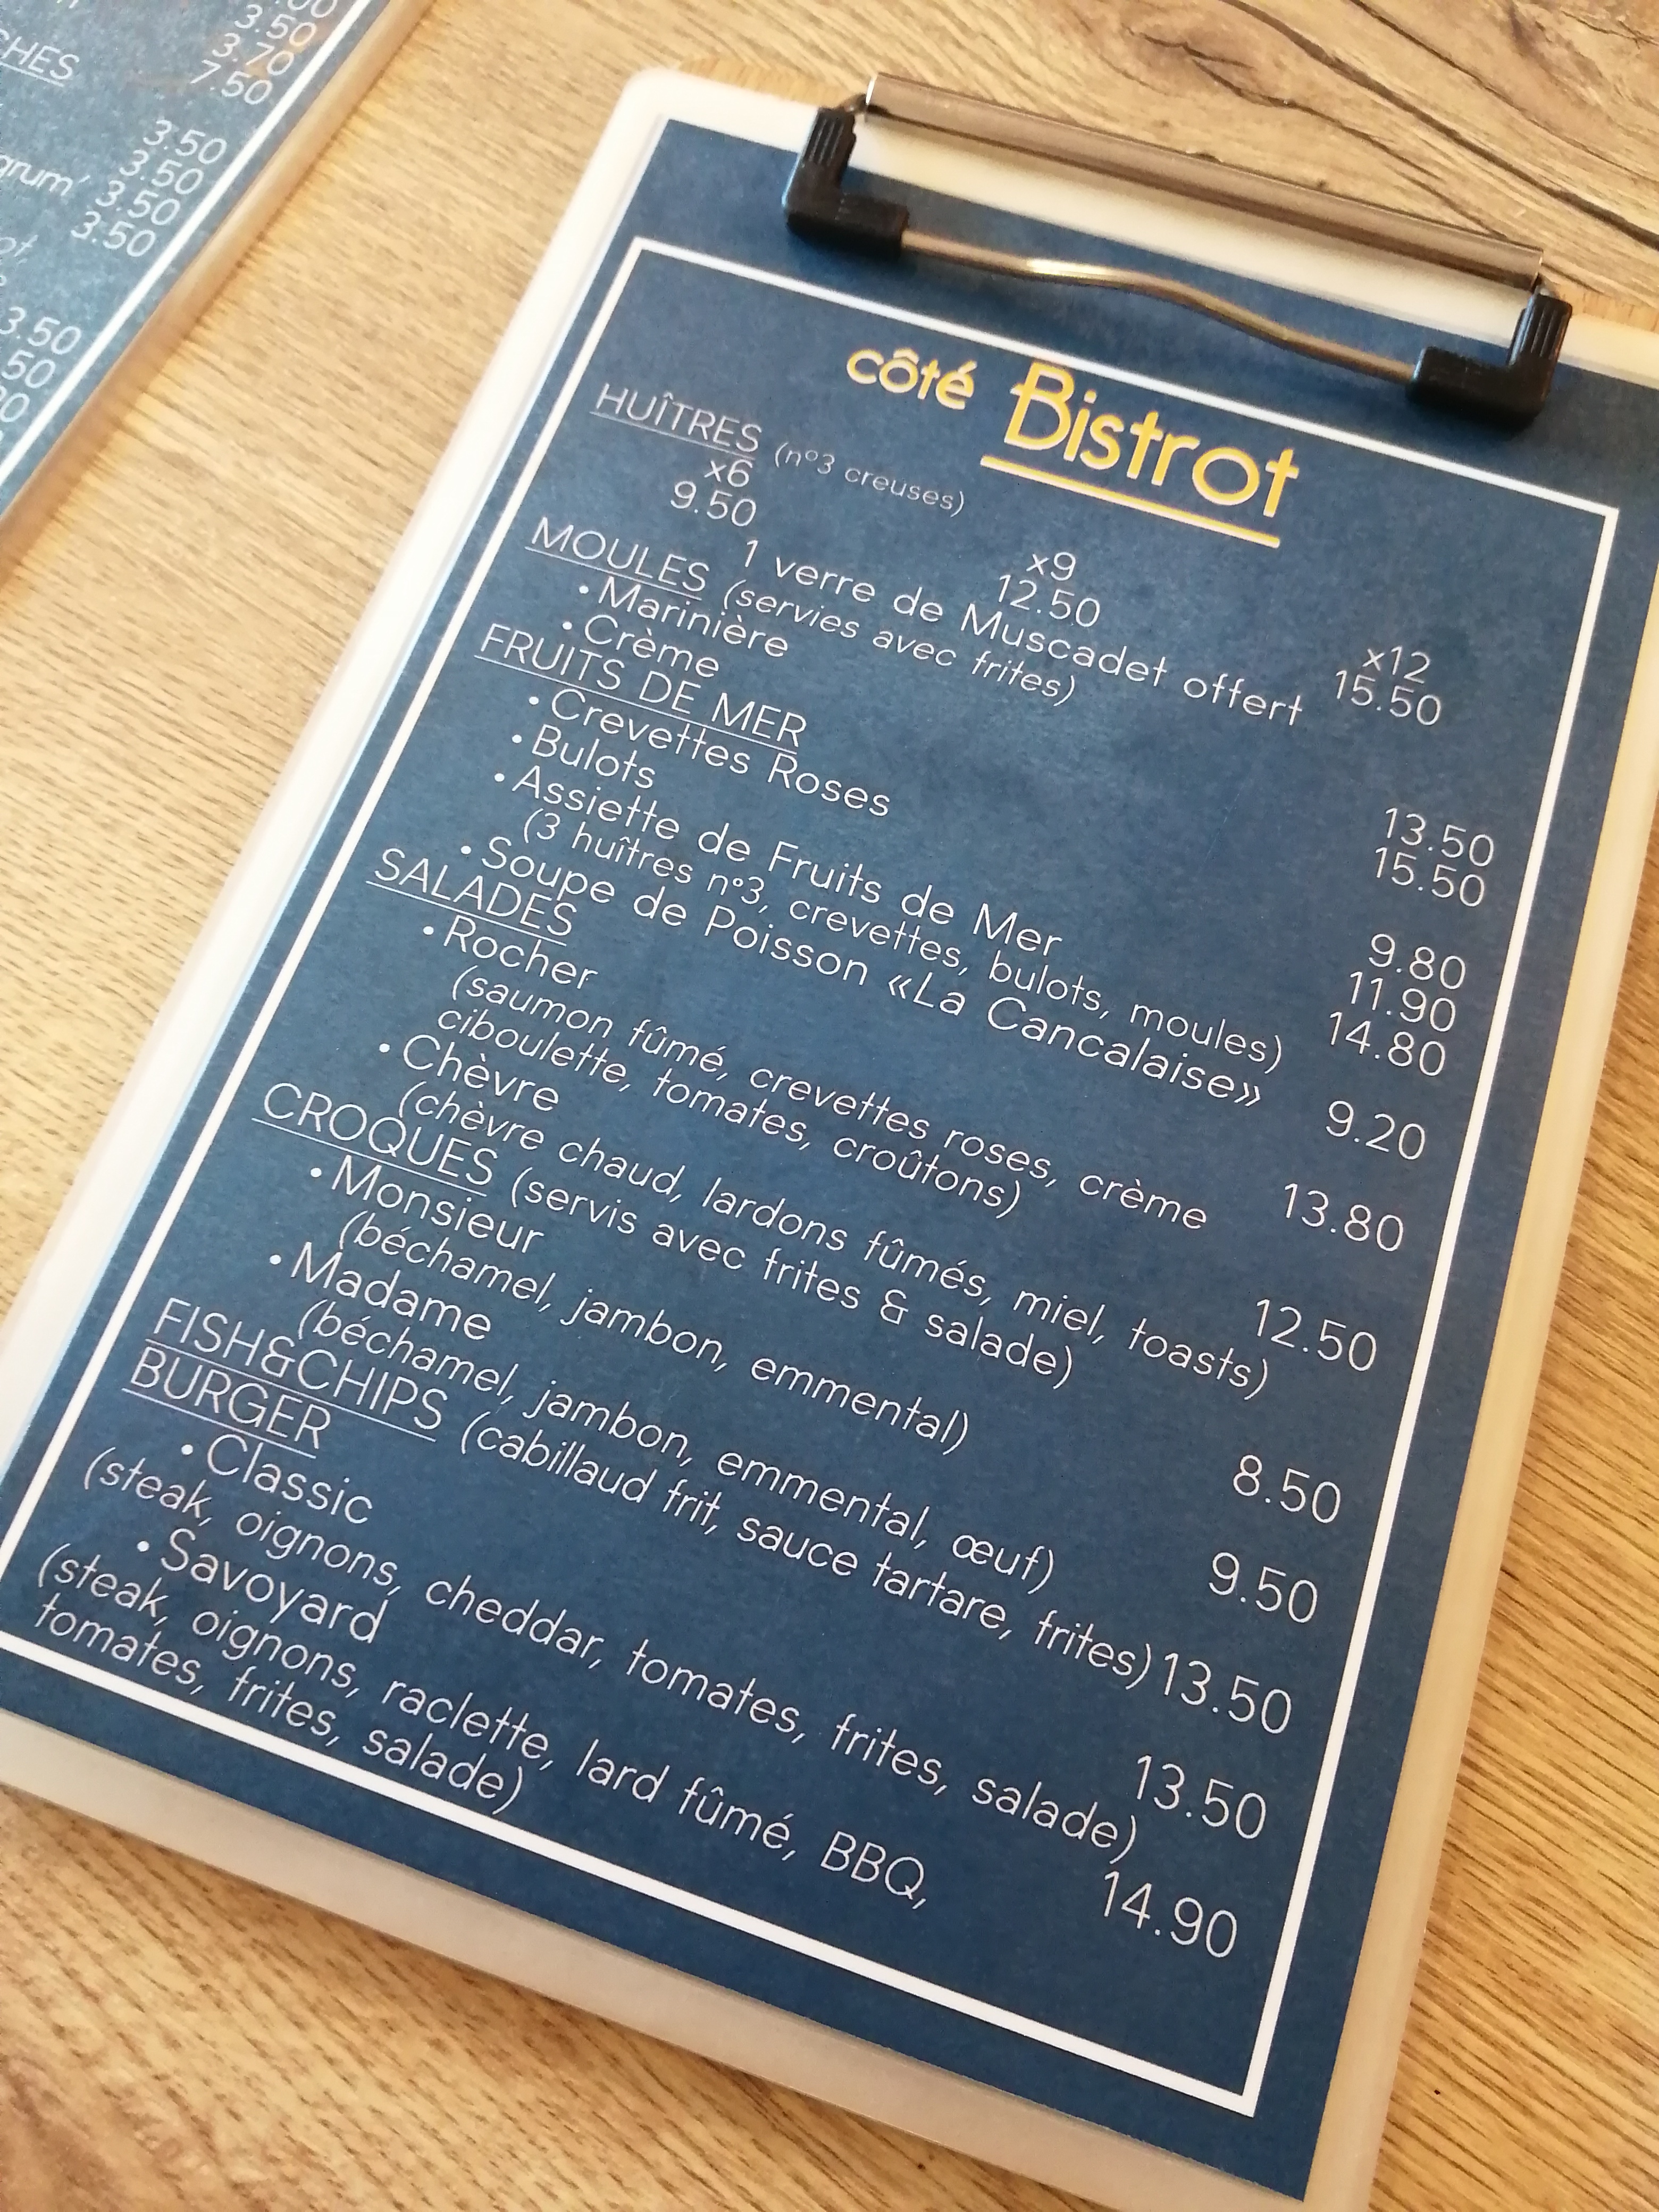 CHES
3.50
3.70
7.50
3.50
3.50
3.50
3.50
3.50
côté Bistrot
HUÎTRES (n°3 creuses)
x6 x9 x12
9.50 12.50 15.50
1 verre de Muscadet offert
MOULES (servies avec frites)
• Marinière 13.50
• Crème 15.50
FRUITS DE MER
• Crevettes Roses 9.80
• Bulots 11.90
• Assiette de Fruits de Mer 14.80
(3 huîtres n°3, crevettes, bulots, moules)
• Soupe de Poisson «La Cancalaise» 9.20
SALADES
• Rocher 13.80
(saumon fûmé, crevettes roses, crème
ciboulette, tomates, croûtons)
• Chèvre 12.50
(chèvre chaud, lardons fûmés, miel, toasts)
CROQUES (servis avec frites & salade)
• Monsieur 8.50
(béchamel, jambon, emmental)
• Madame 9.50
(béchamel, jambon, emmental, œuf)
FISH&CHIPS (cabillaud frit, sauce tartare, frites) 13.50
BURGER
• Classic 13.50
(steak, oignons, cheddar, tomates, frites, salade)
• Savoyard 14.90
(steak, oignons, raclette, lard fûmé, BBQ,
tomates, frites, salade)